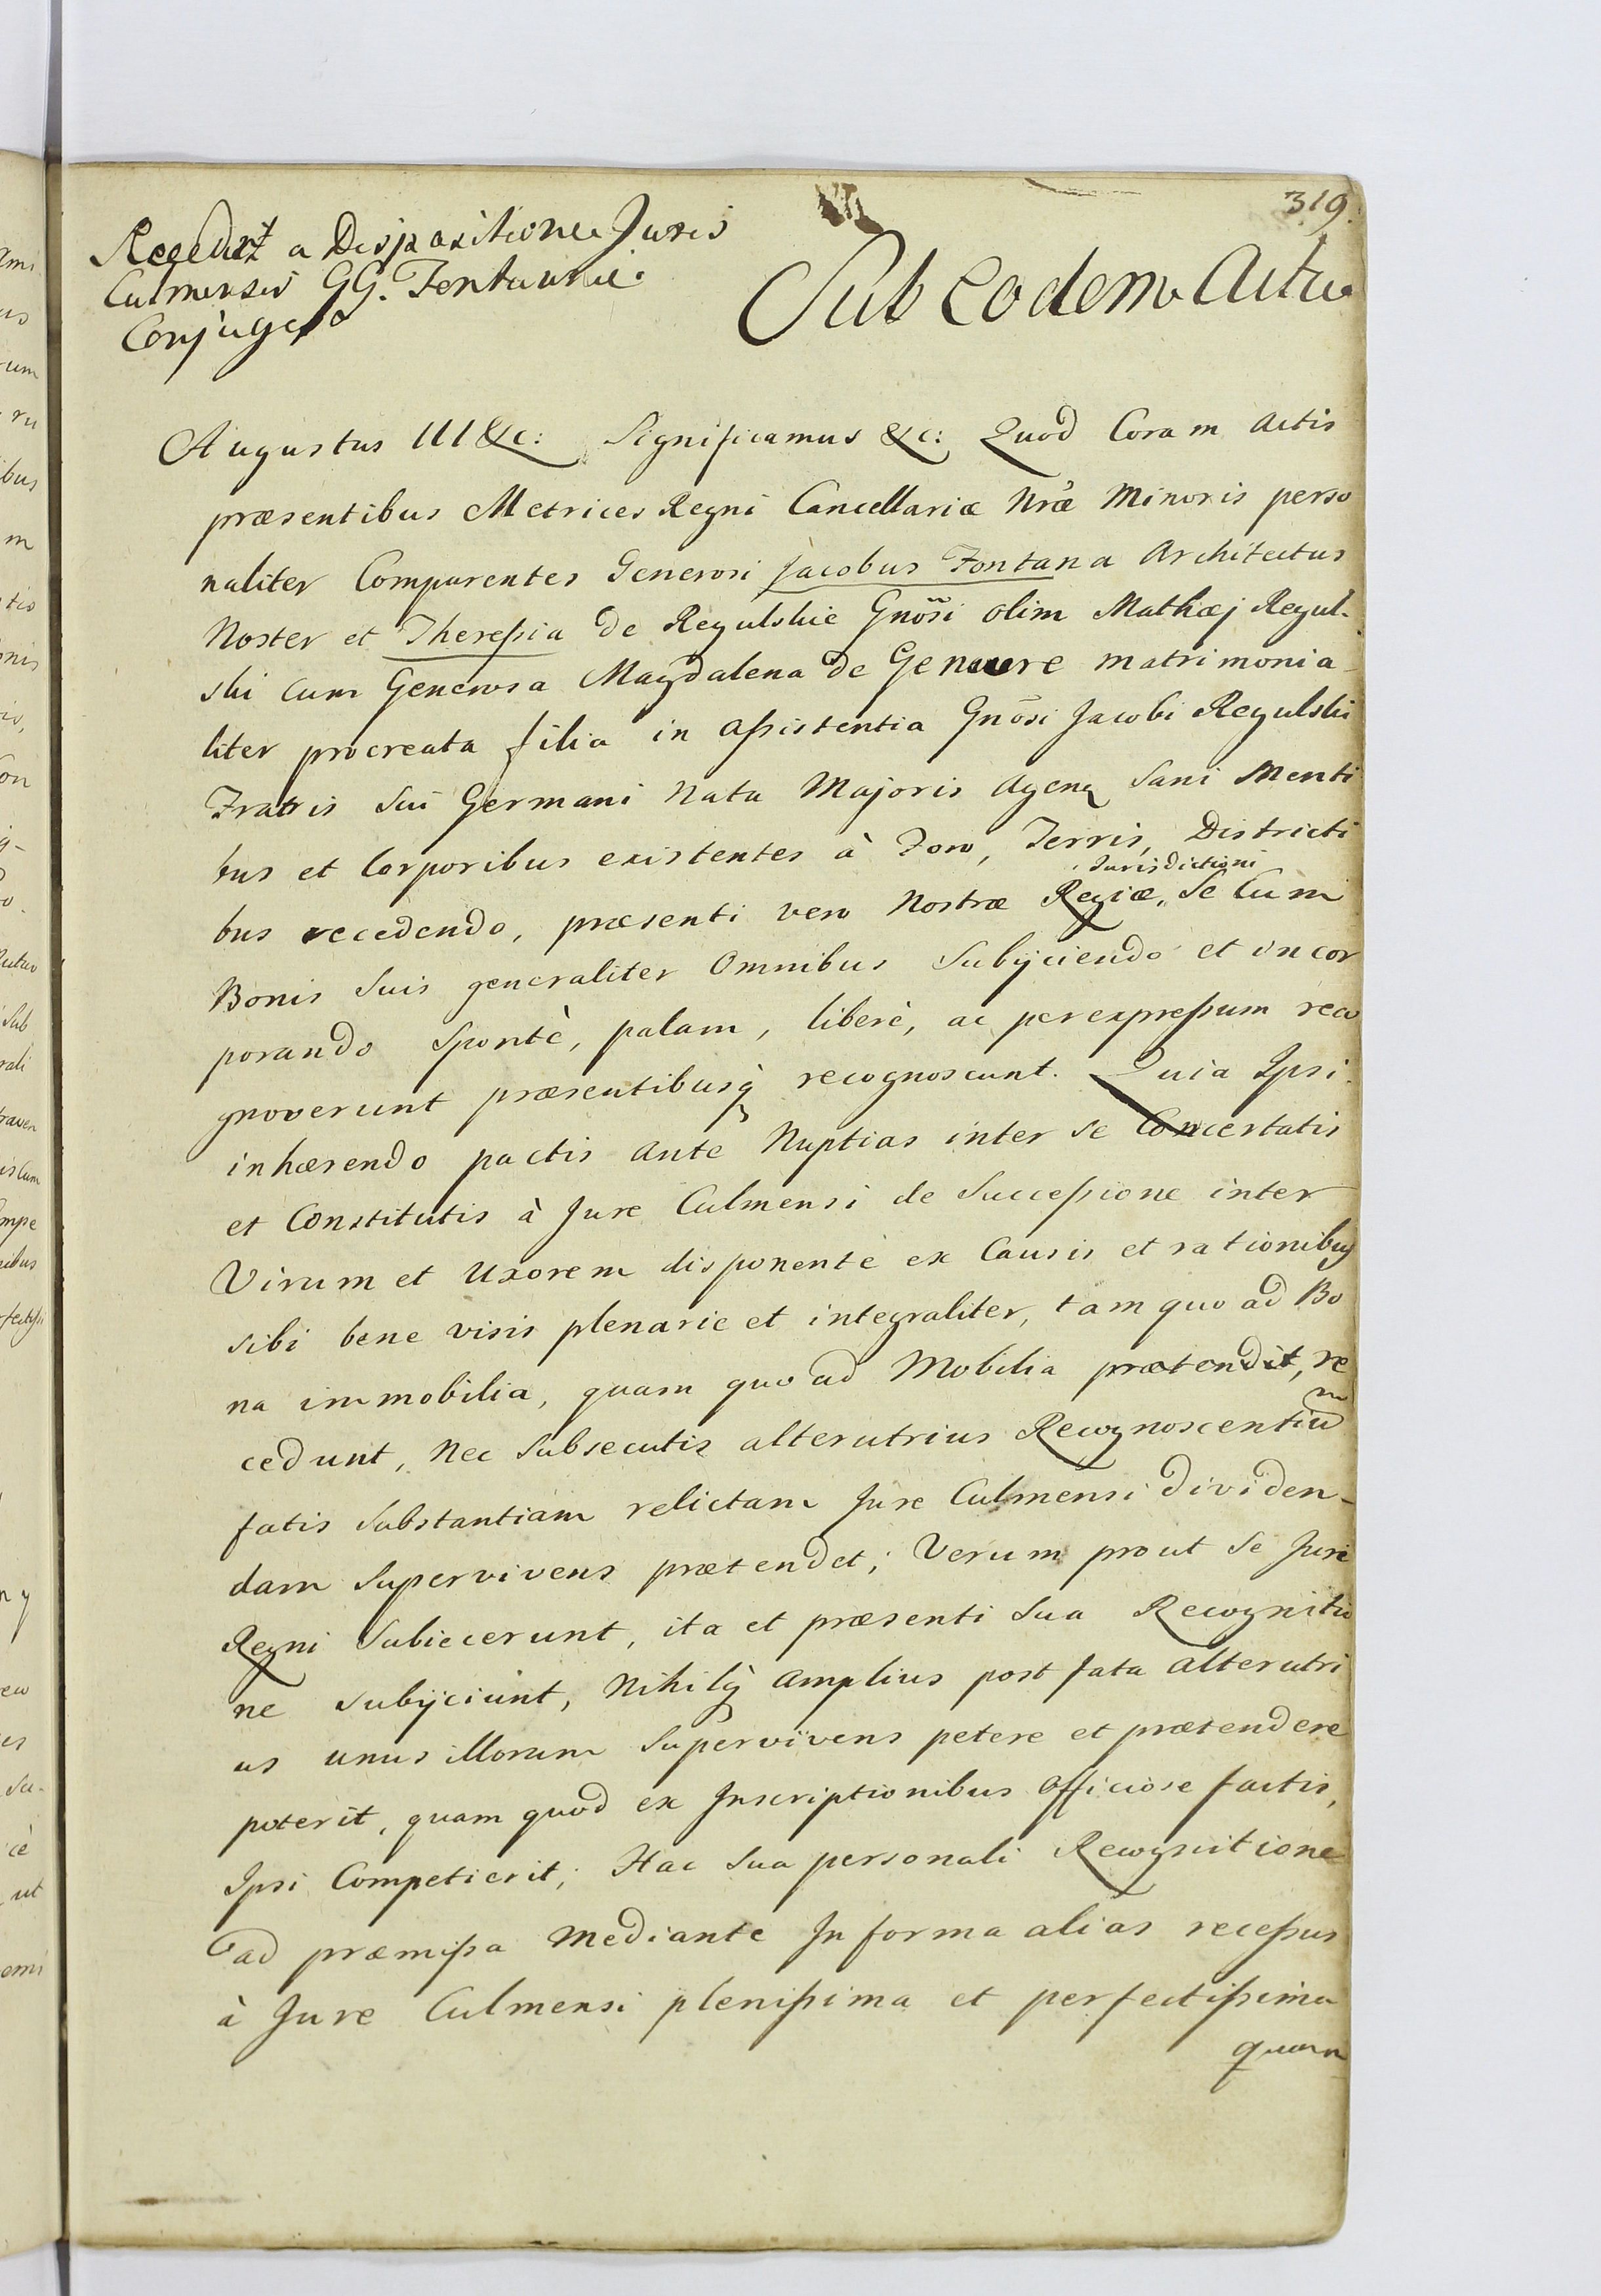 319.
Recedunt a Dispositione Juris
Culmensis GG. Fontannie
Conjuges
Sub Eodem Actu
Augustus III &c: Significamus &c: Quod Coram Actis
præsentibus Metrices Regni Cancellariæ Nræ Minoris perso
naliter Comparentes Generosi Jacobus Fontana Architectus
Noster et Theressia de Regulskie Gnõsi olim Mathæj Regul-
ski cum Generosa Magdalena de matrimonia
liter procreata filia in Assistentia Gnõsi Jacobi Regulski
Fratris Sui Germani Natu Majoris Agens Sani Menti
bus et Corporibus existentes à Foro, Terris, Districti
Jurisdictioni
bus recedendo, præsenti vero Nostræ Regiæ, Se Cum
Bonis Suis generaliter Omnibus Subijciendo et incor
porando Sponté, palam, liberè, ac per expressum reco
gnoverunt præsentibusq recognoscunt. Quia Ipsi
inhærendo pactis ante Nuptias inter se Concertatis
et Constitutis à Jure Culmensi de Successione inter
Virum et Uxorem disponente ex Causis et rationibus
sibi bene visis plenarie et integraliter, tam quo ad Bo
na immobilia, quam quo ad Mobilia prætendit, re
cedunt, Nec Subsecutis alterutrius Recognoscentium
fatis Substantiam relictam Jure Culmensi dividen-
dam Supervivens prætendet; Verum prout Se Juri
Regni Subiecerunt, ita et præsenti Sua Recognitio
ne subijciunt, Nihilq amplius post fata alterutri
us unus illorum Supervivens petere et prætendere
poterit, quam quod ex Inscriptionibus Officiose factis,
Ipsi Competierit; Hac Sua personali Recognitione
ad præmissa Mediante In forma alias recessus
à Jure Culmensi plenissima et perfectissima
quam